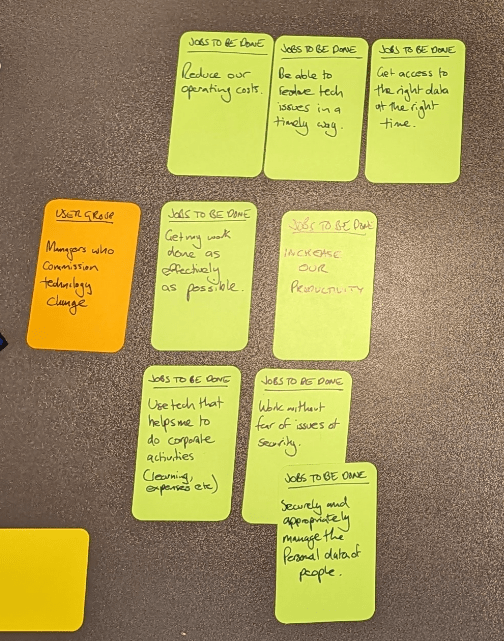 JOBS TO BE DONE
Reduce our
operating costs.
JOBS TO BE DONE
Be able to
resolve tech
issues in a
timely way.
JOBS TO BE DONE
Get access to
the right data
at the right
time.
USER GROUP
Managers who
commission
technology
change
JOBS TO BE DONE
Get my work
done as
effectively
as possible.
JOBS TO BE DONE
INCREASE
OUR
PRODUCTIVITY
JOBS TO BE DONE
Use tech that
helps me to
do corporate
activities
(learning,
expenses etc)
JOBS TO BE DONE
Work without
fear of issues of
security.
JOBS TO BE DONE
Securely and
appropriately
manage the
Personal data of
people.